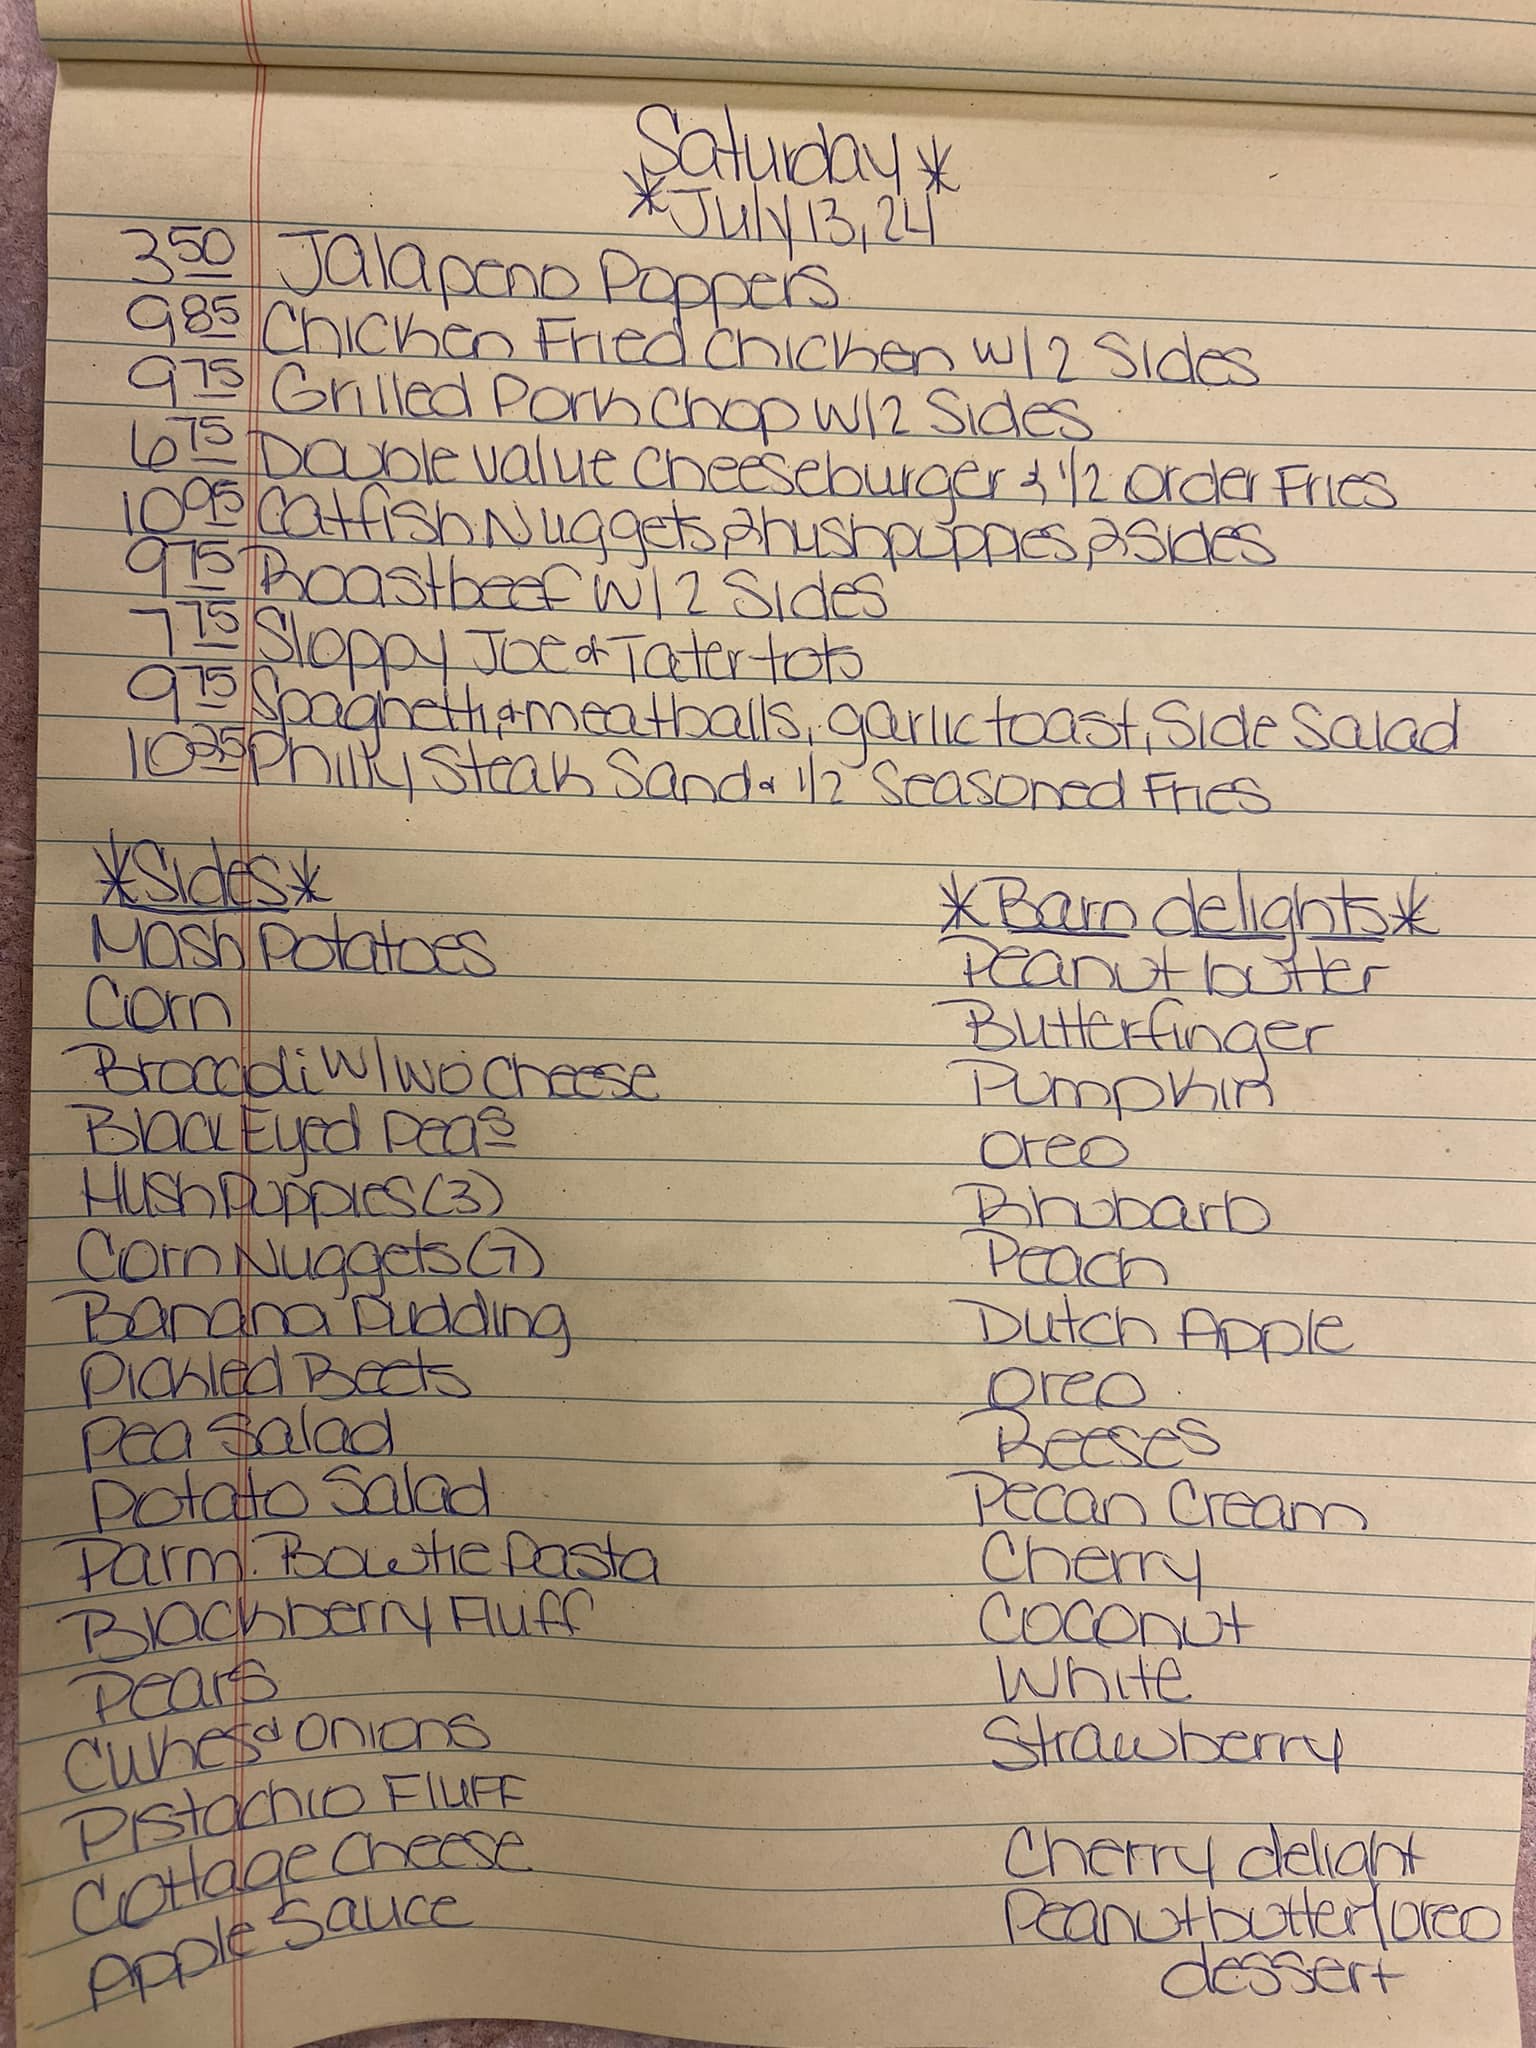 Saturday *
* July 13, 24
3 50 Jalapeno Poppers
9 85 Chicken Fried Chicken w/ 2 Sides
9 75 Grilled Pork Chop w/ 2 Sides
6 75 Double Value Cheeseburger & 1/2 order Fries
10 95 Catfish Nuggets, 2 hushpuppies, 2 Sides
9 75 Roastbeef w/ 2 Sides
7 75 Sloppy Joe & Tater tots
9 75 Spaghetti & meatballs, garlic toast, Side Salad
10 25 Philly Steak Sand & 1/2 Seasoned Fries
*Sides*
Mash Potatoes
Corn
Broccoli w/wo Cheese
Black Eyed Peas
Hush Puppies (3)
Corn Nuggets (7)
Banana Pudding
Pickled Beets
Pea Salad
Potato Salad
Parm. Bowtie Pasta
Blackberry Fluff
Pears
Cukes & Onions
Pistachio Fluff
Cottage Cheese
Apple Sauce
*Barn delights*
Peanut butter
Butterfinger
Pumpkin
Oreo
Rhubarb
Peach
Dutch Apple
Oreo
Reeses
Pecan Cream
Cherry
Coconut
White
Strawberry
Cherry delight
Peanutbutter/oreo
dessert